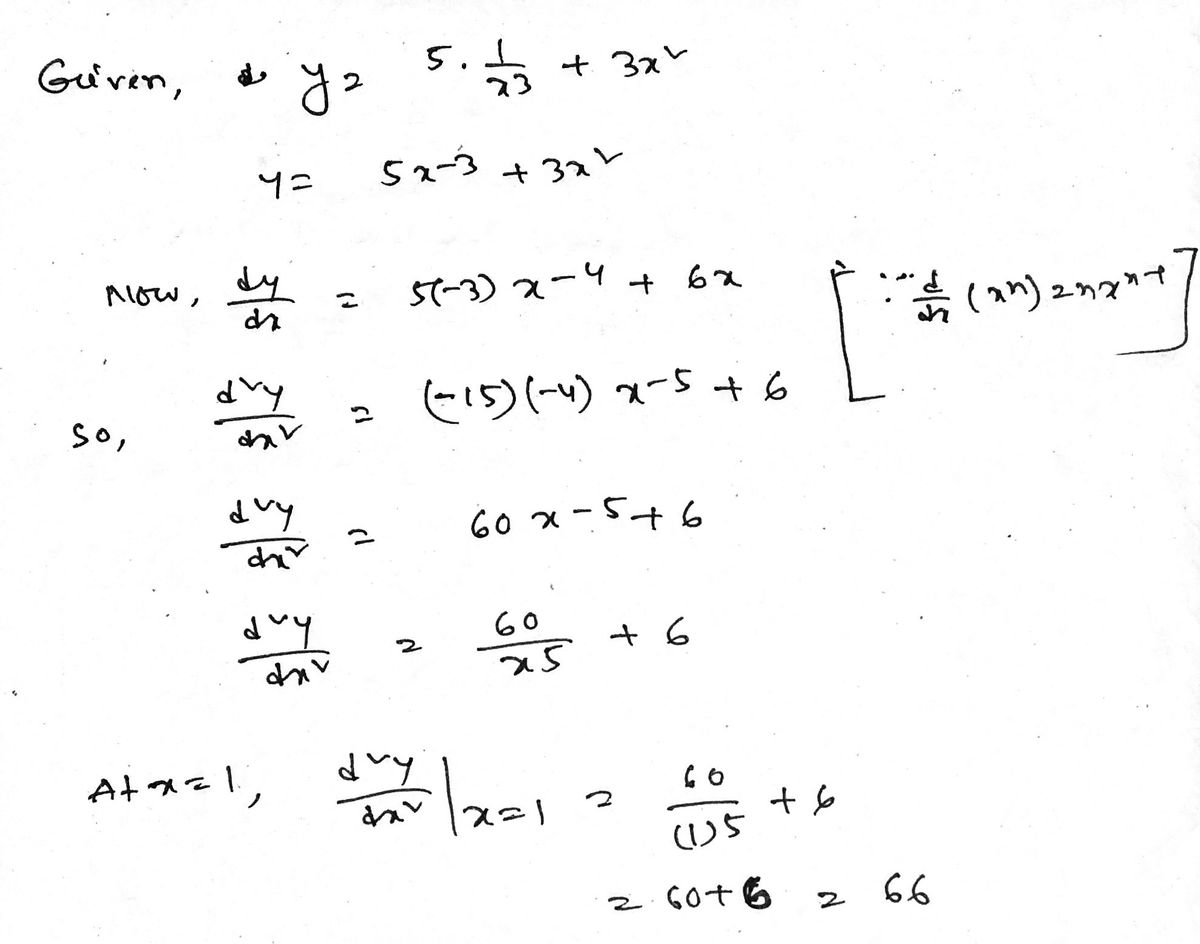 Given, y = 5. 1/x3 + 3x²
y = 5x-3 + 3x²
Now, dy/dx = 5(-3) x-4 + 6x [∵ d/dx (xn) = nxn-1]
So, d²y/dx² = (-15)(-4) x-5 + 6
d²y/dx² = 60 x-5 + 6
d²y/dx² = 60/x5 + 6
At x=1, d²y/dx² | x=1 = 60/(1)5 + 6
= 60+6 = 66